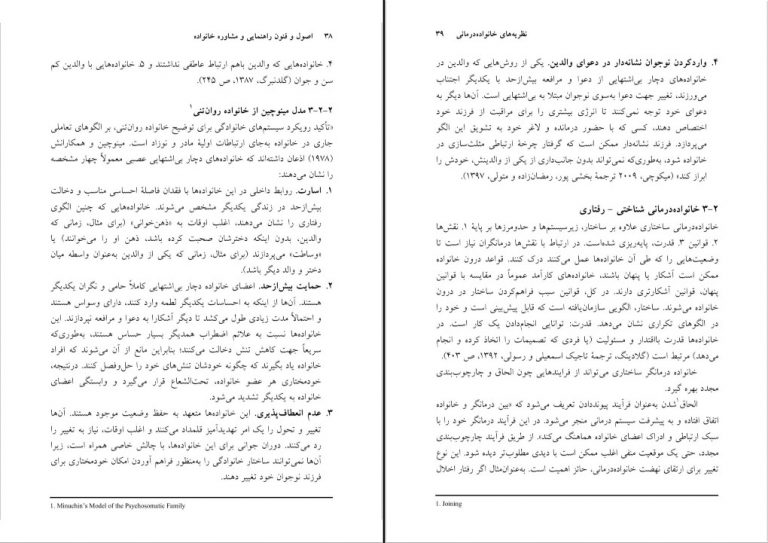 ۳۸ اصول و فنون راهنمایی و مشاوره خانواده
۴. خانواده‌هایی که والدین باهم ارتباط عاطفی نداشتند و ۵. خانواده‌هایی با والدین کم
سن و جوان (گلدنبرگ، ۱۳۸۷، ص ۲۴۵).
۳-۲-۲ مدل مینوچین از خانواده روان‌تنی۱
«تأکید رویکرد سیستم‌های خانوادگی برای توضیح خانواده روان‌تنی، بر الگوهای تعاملی
جاری در خانواده به‌جای ارتباطات اولیهٔ مادر و نوزاد است. مینوچین و همکارانش
(۱۹۷۸) اذعان داشته‌اند که خانواده‌های دچار بی‌اشتهایی عصبی معمولاً چهار مشخصه
را نشان می‌دهند:
۱. اسارت. روابط داخلی در این خانواده‌ها با فقدان فاصلهٔ احساسی مناسب و دخالت
بیش‌ازحد در زندگی یکدیگر مشخص می‌شوند. خانواده‌هایی که چنین الگوی
رفتاری را نشان می‌دهند، اغلب اوقات به «ذهن‌خوانی» (برای مثال، زمانی که
والدین، بدون اینکه دخترشان صحبت کرده باشد، ذهن او را می‌خوانند) یا
«وساطت» می‌پردازند (برای مثال، زمانی که یکی از والدین به‌عنوان واسطه میان
دختر و والد دیگر باشد).
۲. حمایت بیش‌ازحد. اعضای خانواده دچار بی‌اشتهایی کاملاً حامی و نگران یکدیگر
هستند. آن‌ها از اینکه به احساسات یکدیگر لطمه وارد کنند، دارای وسواس هستند
و احتمالاً مدت زیادی طول می‌کشد تا دیگر آشکارا به دعوا و مرافعه نپردازند. این
خانواده‌ها نسبت به علائم اضطراب همدیگر بسیار حساس هستند، به‌طوری‌که
سریعاً جهت کاهش تنش دخالت می‌کنند؛ بنابراین مانع از آن می‌شوند که افراد
خانواده یاد بگیرند که چگونه خودشان تنش‌های خود را حل‌وفصل کنند. درنتیجه،
خودمختاری هر عضو خانواده، تحت‌الشعاع قرار می‌گیرد و وابستگی اعضای
خانواده به یکدیگر تشدید می‌شود.
۳. عدم انعطاف‌پذیری. این خانواده‌ها متعهد به حفظ وضعیت موجود هستند. آن‌ها
تغییر و تحول را یک امر تهدیدآمیز قلمداد می‌کنند و اغلب اوقات، نیاز به تغییر را
رد می‌کنند. دوران جوانی برای این خانواده‌ها، با چالش خاصی همراه است، زیرا
آن‌ها نمی‌توانند ساختار خانوادگی را به‌منظور فراهم آوردن امکان خودمختاری برای
فرزند نوجوان خود تغییر دهند.
1. Minuchin's Model of the Psychosomatic Family
نظریه‌های خانواده‌درمانی ۳۹
۴. واردکردن نوجوان نشانه‌دار در دعوای والدین. یکی از روش‌هایی که والدین در
خانواده‌های دچار بی‌اشتهایی از دعوا و مرافعه بیش‌ازحد با یکدیگر اجتناب
می‌ورزند، تغییر جهت دعوا به‌سوی نوجوان مبتلا به بی‌اشتهایی است. آن‌ها دیگر به
دعوای خود توجه نمی‌کنند تا انرژی بیشتری را برای مراقبت از فرزند خود
اختصاص دهند، کسی که با حضور درمانده و لاغر خود به تشویق این الگو
می‌پردازد. فرزند نشانه‌دار ممکن است که گرفتار چرخهٔ ارتباطی مثلث‌سازی در
خانواده شود، به‌طوری‌که نمی‌تواند بدون جانب‌داری از یکی از والدینش، خودش را
ابراز کند» (میکوچی، ۲۰۰۹ ترجمهٔ بخشی پور، رمضان‌زاده و متولی، ۱۳۹۷).
۳-۲ خانواده‌درمانی شناختی – رفتاری
خانواده‌درمانی ساختاری علاوه بر ساختار، زیرسیستم‌ها و حدومرزها بر پایهٔ ۱. نقش‌ها
۲. قوانین ۳. قدرت، پایه‌ریزی شده‌است. در ارتباط با نقش‌ها درمانگران نیاز است تا
وضعیت‌هایی را که طی آن خانواده‌ها عمل می‌کنند درک کنند. قواعد درون خانواده
ممکن است آشکار یا پنهان باشند، خانواده‌های کارآمد عموماً در مقایسه با قوانین
پنهان، قوانین آشکارتری دارند. در کل، قوانین سبب فراهم‌کردن ساختار در درون
خانواده می‌شوند. ساختار، الگویی سازمان‌یافته است که قابل پیش‌بینی است و خود را
در الگوهای تکراری نشان می‌دهد. قدرت: توانایی انجام‌دادن یک کار است. در
خانواده‌ها قدرت بااقتدار و مسئولیت (یا فردی که تصمیمات را اتخاذ کرده و انجام
می‌دهد) مرتبط است (گلادینگ، ترجمهٔ تاجیک اسمعیلی و رسولی، ۱۳۹۲، ص ۴۰۳).
خانواده درمانگر ساختاری می‌تواند از فرایندهایی چون الحاق و چارچوب‌بندی
مجدد بهره گیرد.
الحاق۱شدن به‌عنوان فرآیند پیونددادن تعریف می‌شود که «بین درمانگر و خانواده
اتفاق افتاده و به پیشرفت سیستم درمانی منجر می‌شود. در این فرآیند درمانگر خود را با
سبک ارتباطی و ادراک اعضای خانواده هماهنگ می‌کند». از طریق فرآیند چارچوب‌بندی
مجدد، حتی یک موقعیت منفی اغلب ممکن است با دیدی مطلوب‌تر دیده شود. این نوع
تغییر برای ارتقای نهضت خانواده‌درمانی، حائز اهمیت است. به‌عنوان‌مثال اگر رفتار اخلال
1. Joining